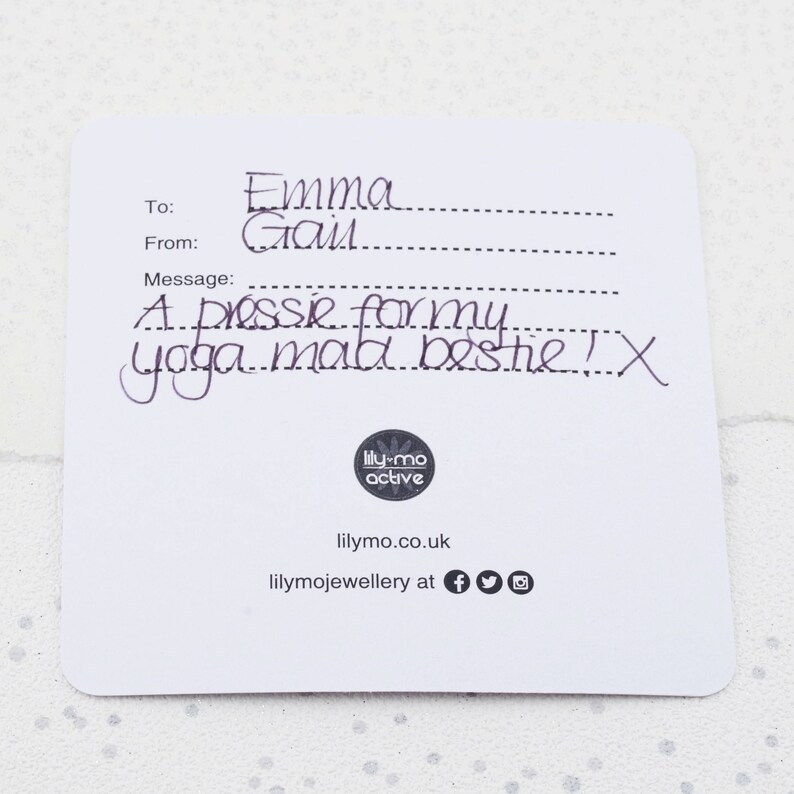 To: Emma
From: Gail
Message:
A pressie for my
yoga mad bestie! X
lily mo
active
lilymo.co.uk
lilymojewellery at